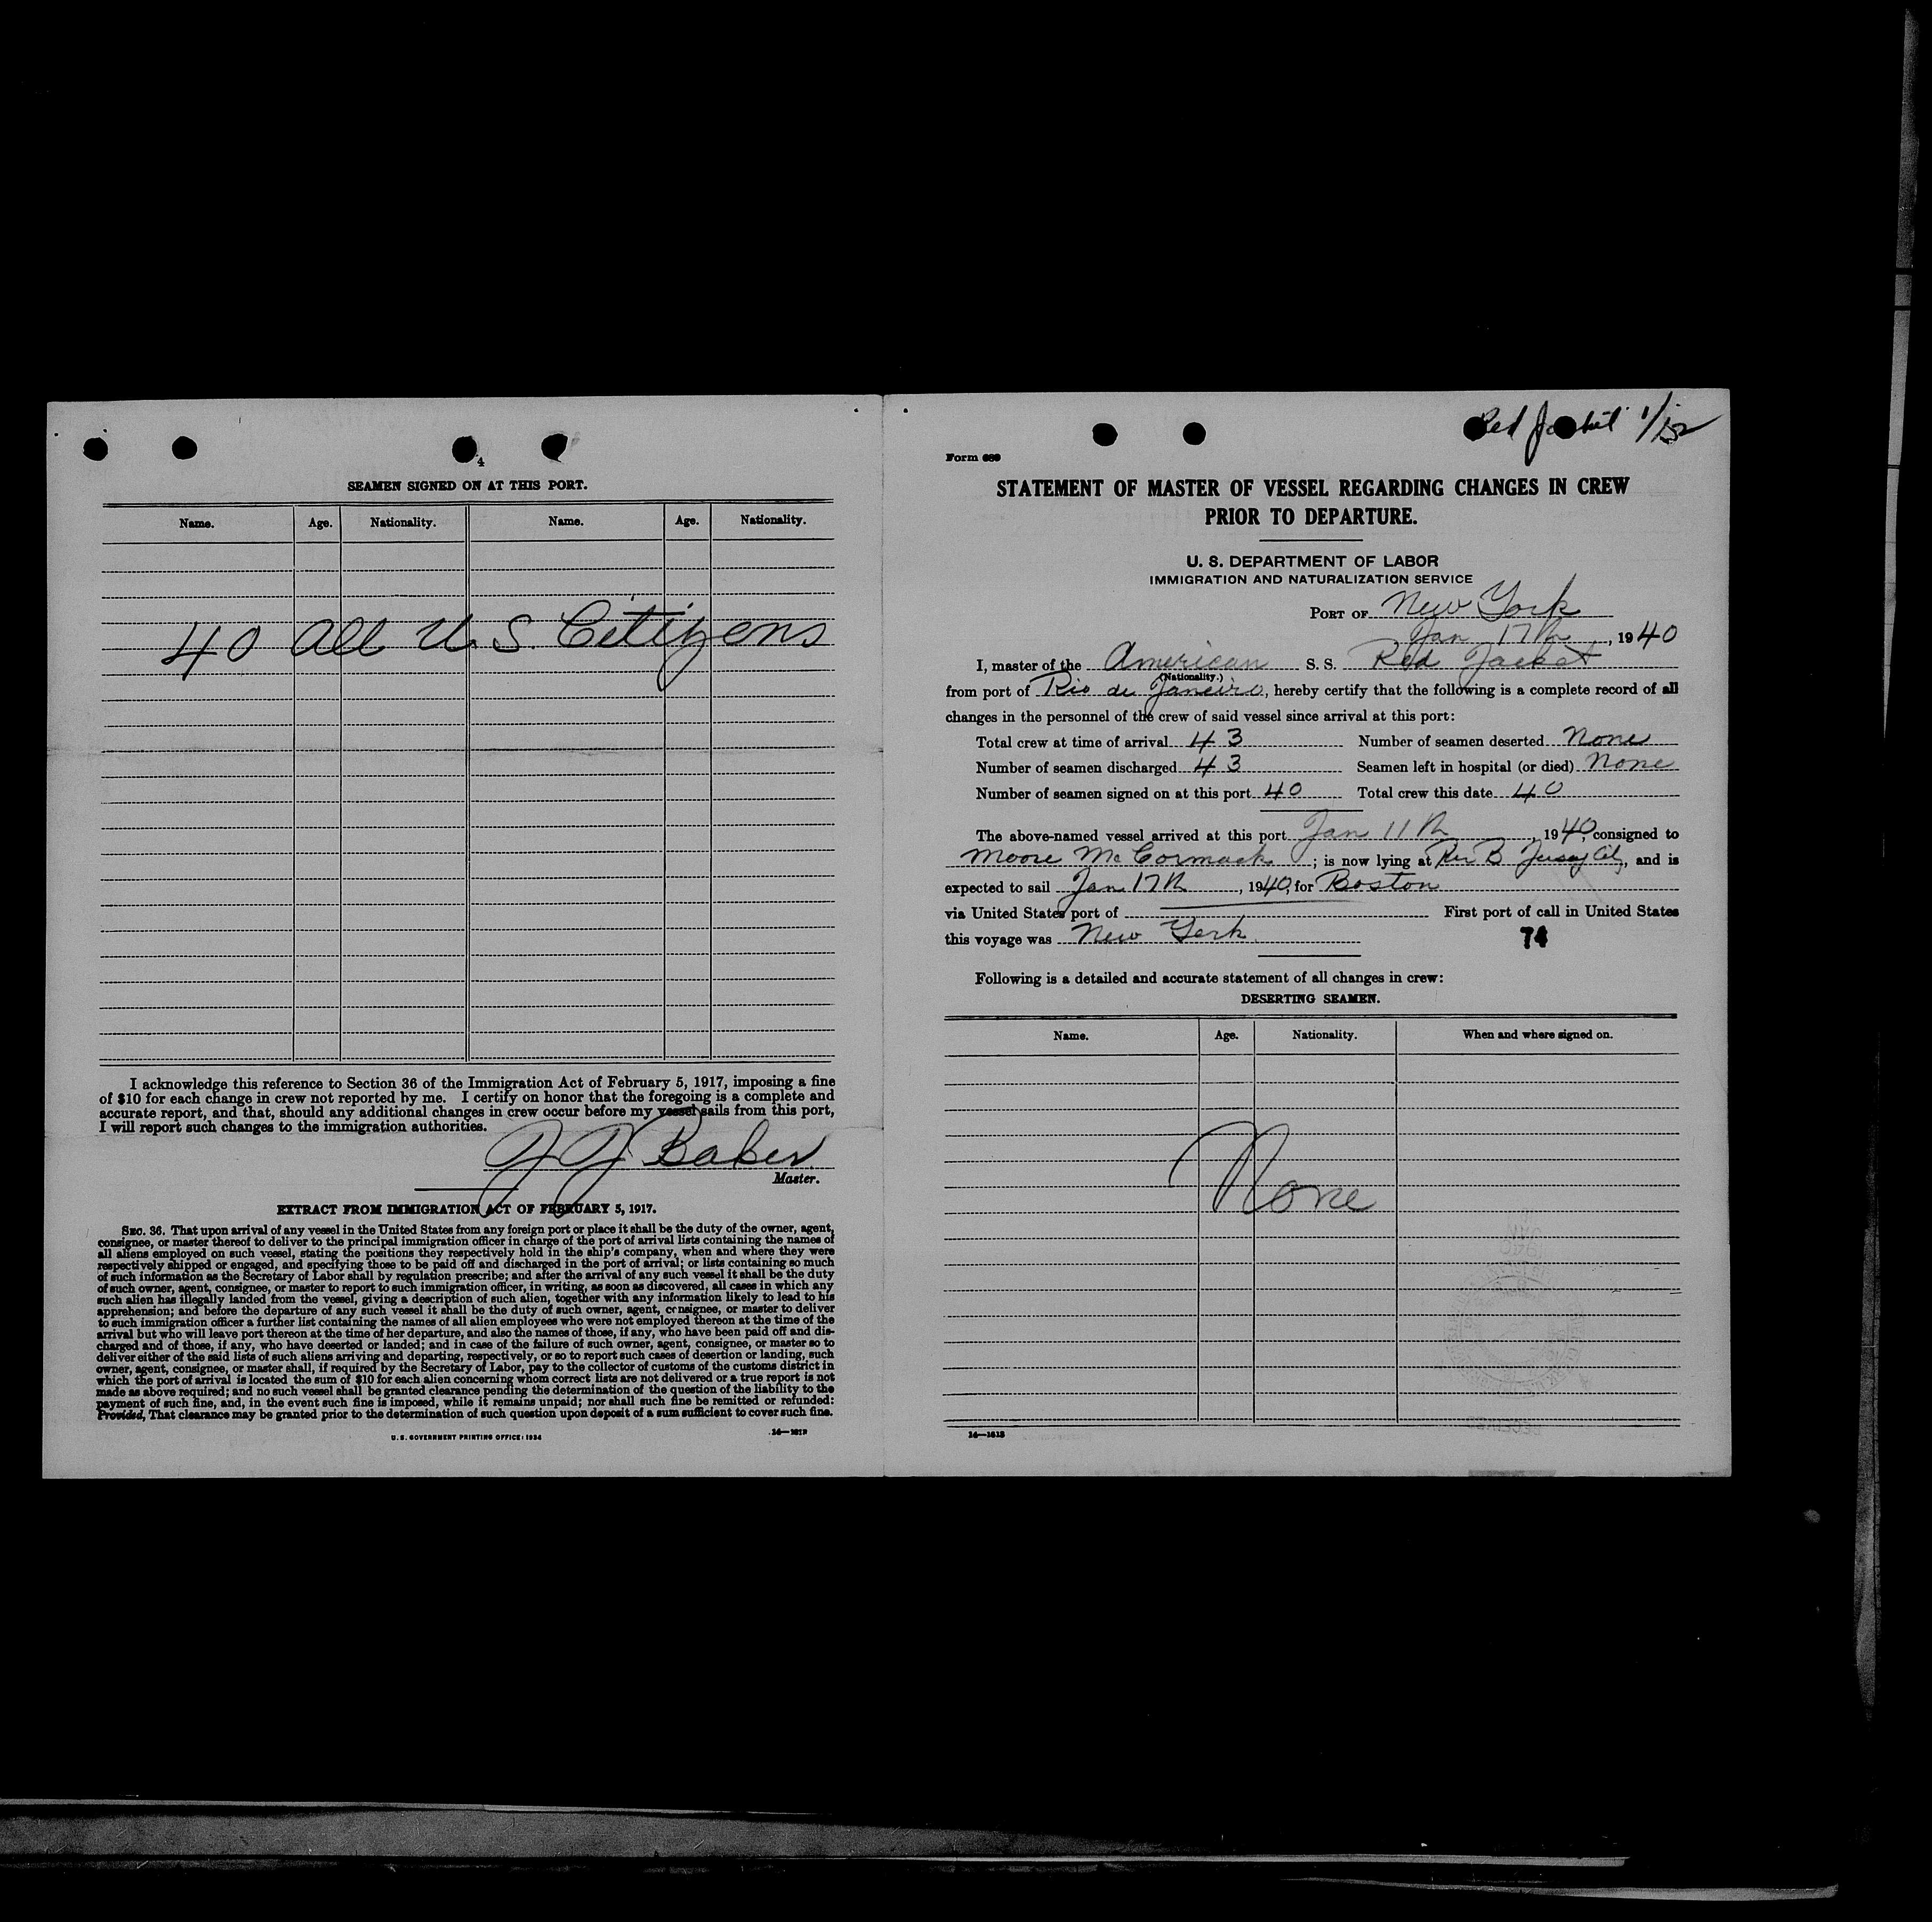 4
SEAMEN SIGNED ON AT THIS PORT.
Name. Age. Nationality. Name. Age. Nationality.
40 All U. S. Citizens
I acknowledge this reference to Section 36 of the Immigration Act of February 5, 1917, imposing a fine
of $10 for each change in crew not reported by me. I certify on honor that the foregoing is a complete and
accurate report, and that, should any additional changes in crew occur before my vessel sails from this port,
I will report such changes to the immigration authorities.
J J Baker
Master.
EXTRACT FROM IMMIGRATION ACT OF FEBRUARY 5, 1917.
SEC. 36. That upon arrival of any vessel in the United States from any foreign port or place it shall be the duty of the owner, agent,
consignee, or master thereof to deliver to the principal immigration officer in charge of the port of arrival lists containing the names of
all aliens employed on such vessel, stating the positions they respectively hold in the ship's company, when and where they were
respectively shipped or engaged, and specifying those to be paid off and discharged in the port of arrival; or lists containing so much
of such information as the Secretary of Labor shall by regulation prescribe; and after the arrival of any such vessel it shall be the duty
of such owner, agent, consignee, or master to report to such immigration officer, in writing, as soon as discovered, all cases in which any
such alien has illegally landed from the vessel, giving a description of such alien, together with any information likely to lead to his
apprehension; and before the departure of any such vessel it shall be the duty of such owner, agent, consignee, or master to deliver
to such immigration officer a further list containing the names of all alien employees who were not employed thereon at the time of the
arrival but who will leave port thereon at the time of her departure, and also the names of those, if any, who have been paid off and dis-
charged and of those, if any, who have deserted or landed; and in case of the failure of such owner, agent, consignee, or master so to
deliver either of the said lists of such aliens arriving and departing, respectively, or so to report such cases of desertion or landing, such
owner, agent, consignee, or master shall, if required by the Secretary of Labor, pay to the collector of customs of the customs district in
which the port of arrival is located the sum of $10 for each alien concerning whom correct lists are not delivered or a true report is not
made as above required; and no such vessel shall be granted clearance pending the determination of the question of the liability to the
payment of such fine, and, in the event such fine is imposed, while it remains unpaid; nor shall such fine be remitted or refunded:
Provided, That clearance may be granted prior to the determination of such question upon deposit of a sum sufficient to cover such fine.
U. S. GOVERNMENT PRINTING OFFICE: 1934
Red Jacket
Form 689
STATEMENT OF MASTER OF VESSEL REGARDING CHANGES IN CREW
PRIOR TO DEPARTURE.
U. S. DEPARTMENT OF LABOR
IMMIGRATION AND NATURALIZATION SERVICE
PORT OF New York
Jan 17th, 1940
I, master of the American S. S. Red Jacket
(Nationality.)
from port of Rio de Janeiro, hereby certify that the following is a complete record of all
changes in the personnel of the crew of said vessel since arrival at this port:
Total crew at time of arrival 43 Number of seamen deserted None
Number of seamen discharged 43 Seamen left in hospital (or died) None
Number of seamen signed on at this port 40 Total crew this date 40
The above-named vessel arrived at this port Jan 11th, 1940, consigned to
Moore McCormack; is now lying at Pier B Jersey City, and is
expected to sail Jan 17th, 1940, for Boston
via United States port of First port of call in United States
this voyage was New York
74
Following is a detailed and accurate statement of all changes in crew:
DESERTING SEAMEN.
Name. Age. Nationality. When and where signed on.
None
14—1613